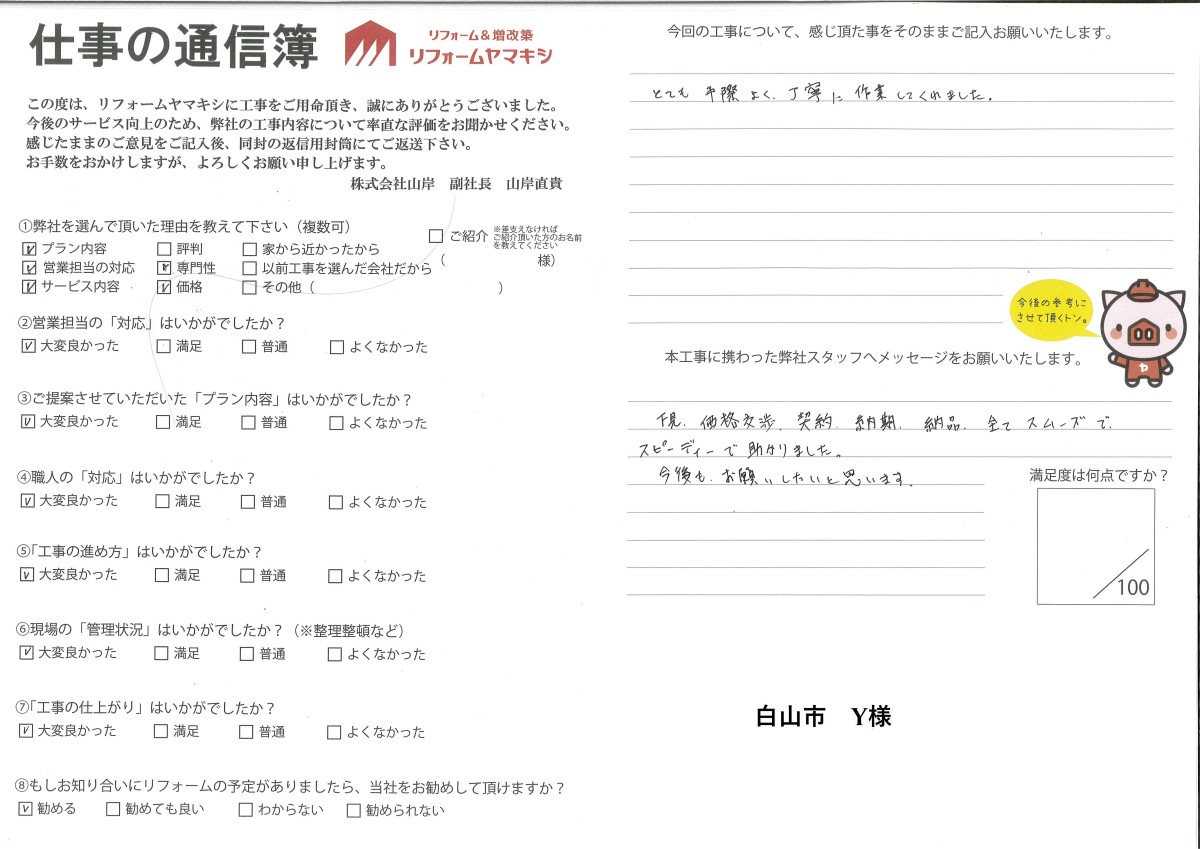 仕事の通信簿
リフォーム&増改築
リフォームヤマキシ
この度は、リフォームヤマキシに工事をご用命頂き、誠にありがとうございました。
今後のサービス向上のため、弊社の工事内容について率直な評価をお聞かせください。
感じたままのご意見をご記入後、同封の返信用封筒にてご返送下さい。
お手数をおかけしますが、よろしくお願い申し上げます。
株式会社山岸 副社長 山岸直貴
①弊社を選んで頂いた理由を教えて下さい（複数可）
☑ プラン内容 □ 評判 □ 家から近かったから
☑ 営業担当の対応 ☑ 専門性 □ 以前工事を選んだ会社だから
☑ サービス内容 ☑ 価格 □ その他（ ）
□ ご紹介 ※差支えなければ
ご紹介頂いた方のお名前
を教えてください
（ 様）
②営業担当の「対応」はいかがでしたか？
☑ 大変良かった □ 満足 □ 普通 □ よくなかった
③ご提案させていただいた「プラン内容」はいかがでしたか？
☑ 大変良かった □ 満足 □ 普通 □ よくなかった
④職人の「対応」はいかがでしたか？
☑ 大変良かった □ 満足 □ 普通 □ よくなかった
⑤「工事の進め方」はいかがでしたか？
☑ 大変良かった □ 満足 □ 普通 □ よくなかった
⑥現場の「管理状況」はいかがでしたか？（※整理整頓など）
☑ 大変良かった □ 満足 □ 普通 □ よくなかった
⑦「工事の仕上がり」はいかがでしたか？
☑ 大変良かった □ 満足 □ 普通 □ よくなかった
⑧もしお知り合いにリフォームの予定がありましたら、当社をお勧めして頂けますか？
☑ 勧める □ 勧めても良い □ わからない □ 勧められない
今回の工事について、感じ頂た事をそのままご記入お願いいたします。
とても手際よく、丁寧に作業してくれました。
今後の参考に
させて頂くトン。
ヤ
本工事に携わった弊社スタッフへメッセージをお願いいたします。
下見、価格交渉、契約、納期、納品、全てスムーズで、
スピーディーで助かりました。
今後も、お願いしたいと思います。
満足度は何点ですか？
／100
白山市 Y様